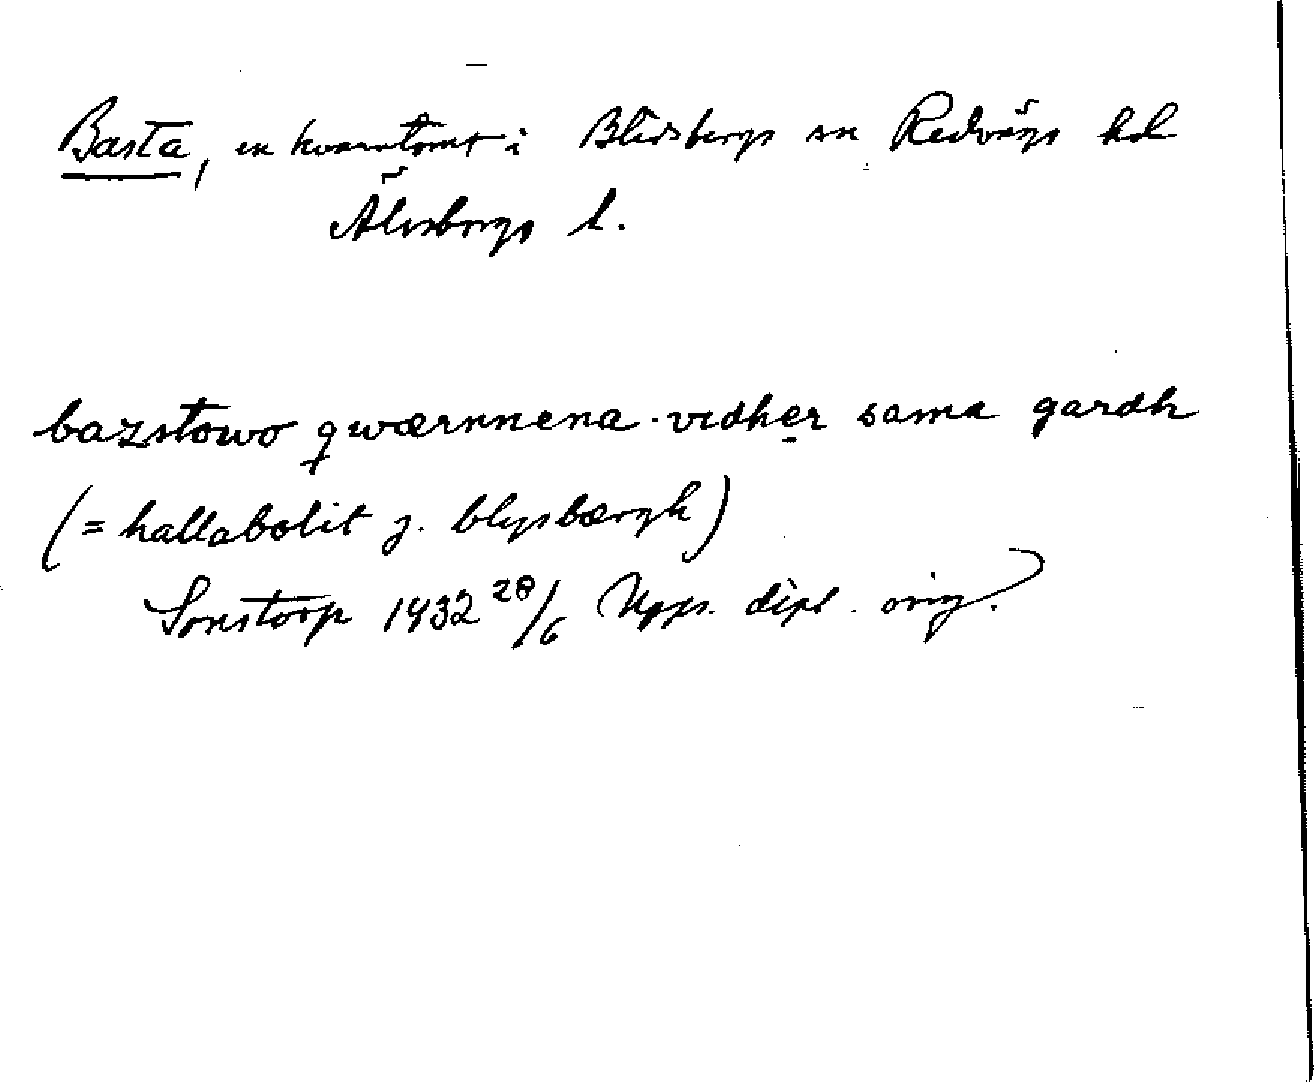 Basta, en kvarntomt i Blidsbergs sn Redvägs hd
Älvsborgs l.
bazstowo qwærnnena vidher sama gardh
(= hallabolit j. blysbærgh)
Sonstorp 1432 28/6 Upps. dipl. orig.